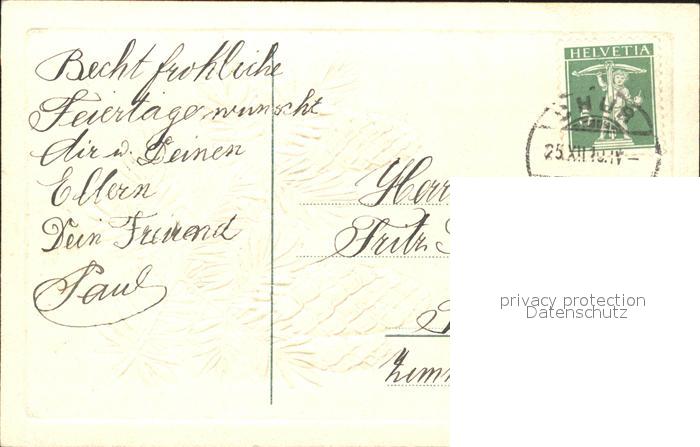 Recht frohliche
Feiertage wunscht
dir u. Deinen
Eltern
Dein Freund
Paul
HELVETIA
25.XII.10.IV-
Herr
Fritz
privacy protection
Datenschutz